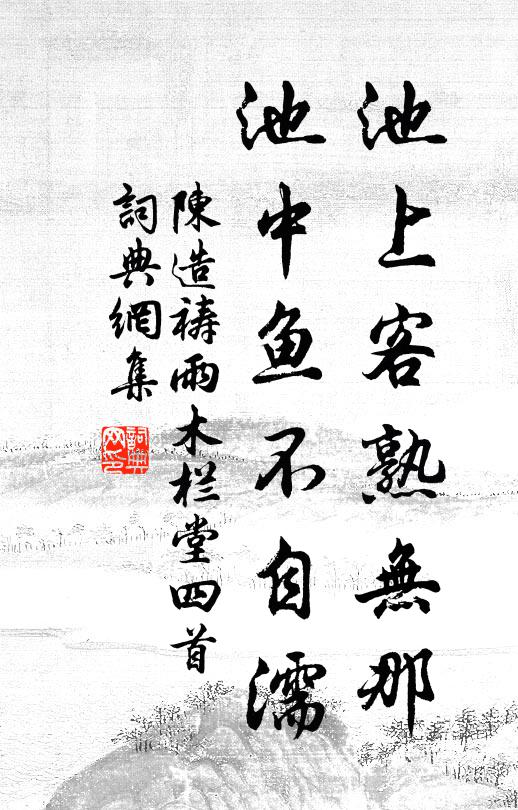 池上客熟無那
池中鱼不自濡
陳造禱雨木栏堂四首
詞典網集